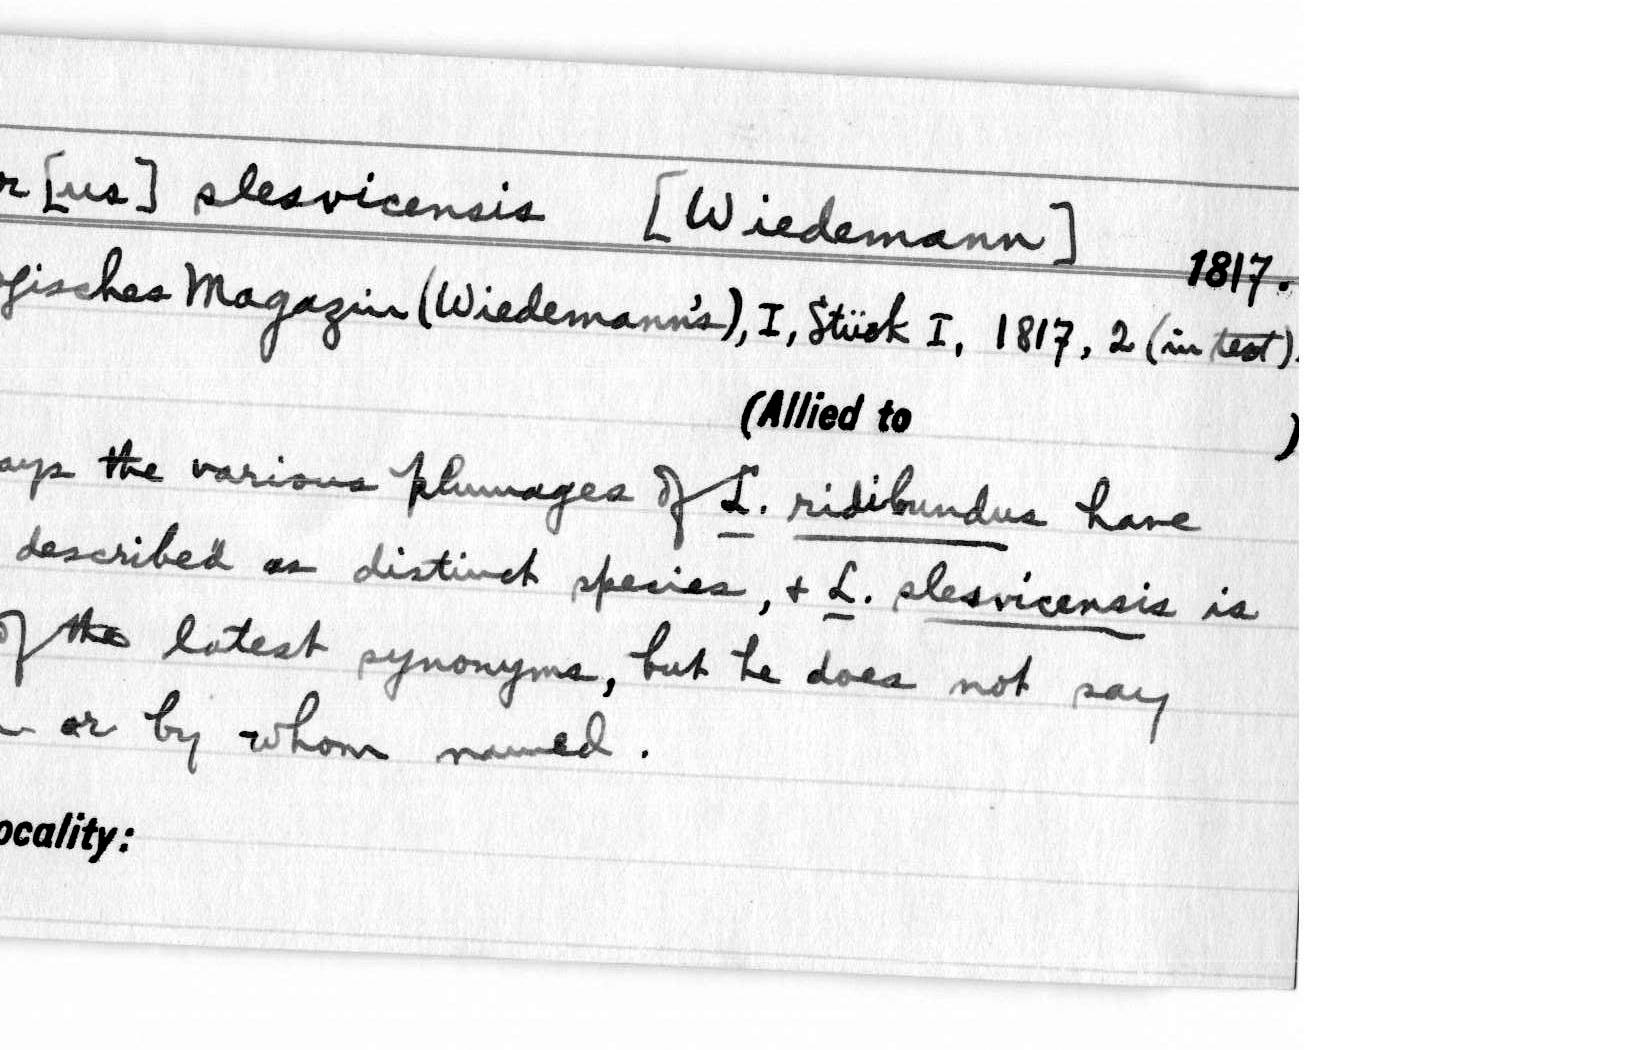 r[us] slesvicensis [Wiedemann] 1817.
gisches Magazin (Wiedemann's), I, Stück I, 1817, 2 (in text).
(Allied to )
ays the various plumages of L. ridibundus have
described as distinct species, + L. slesvicensis is
of the latest synonyms, but he does not say
or by whom named.
ocality: